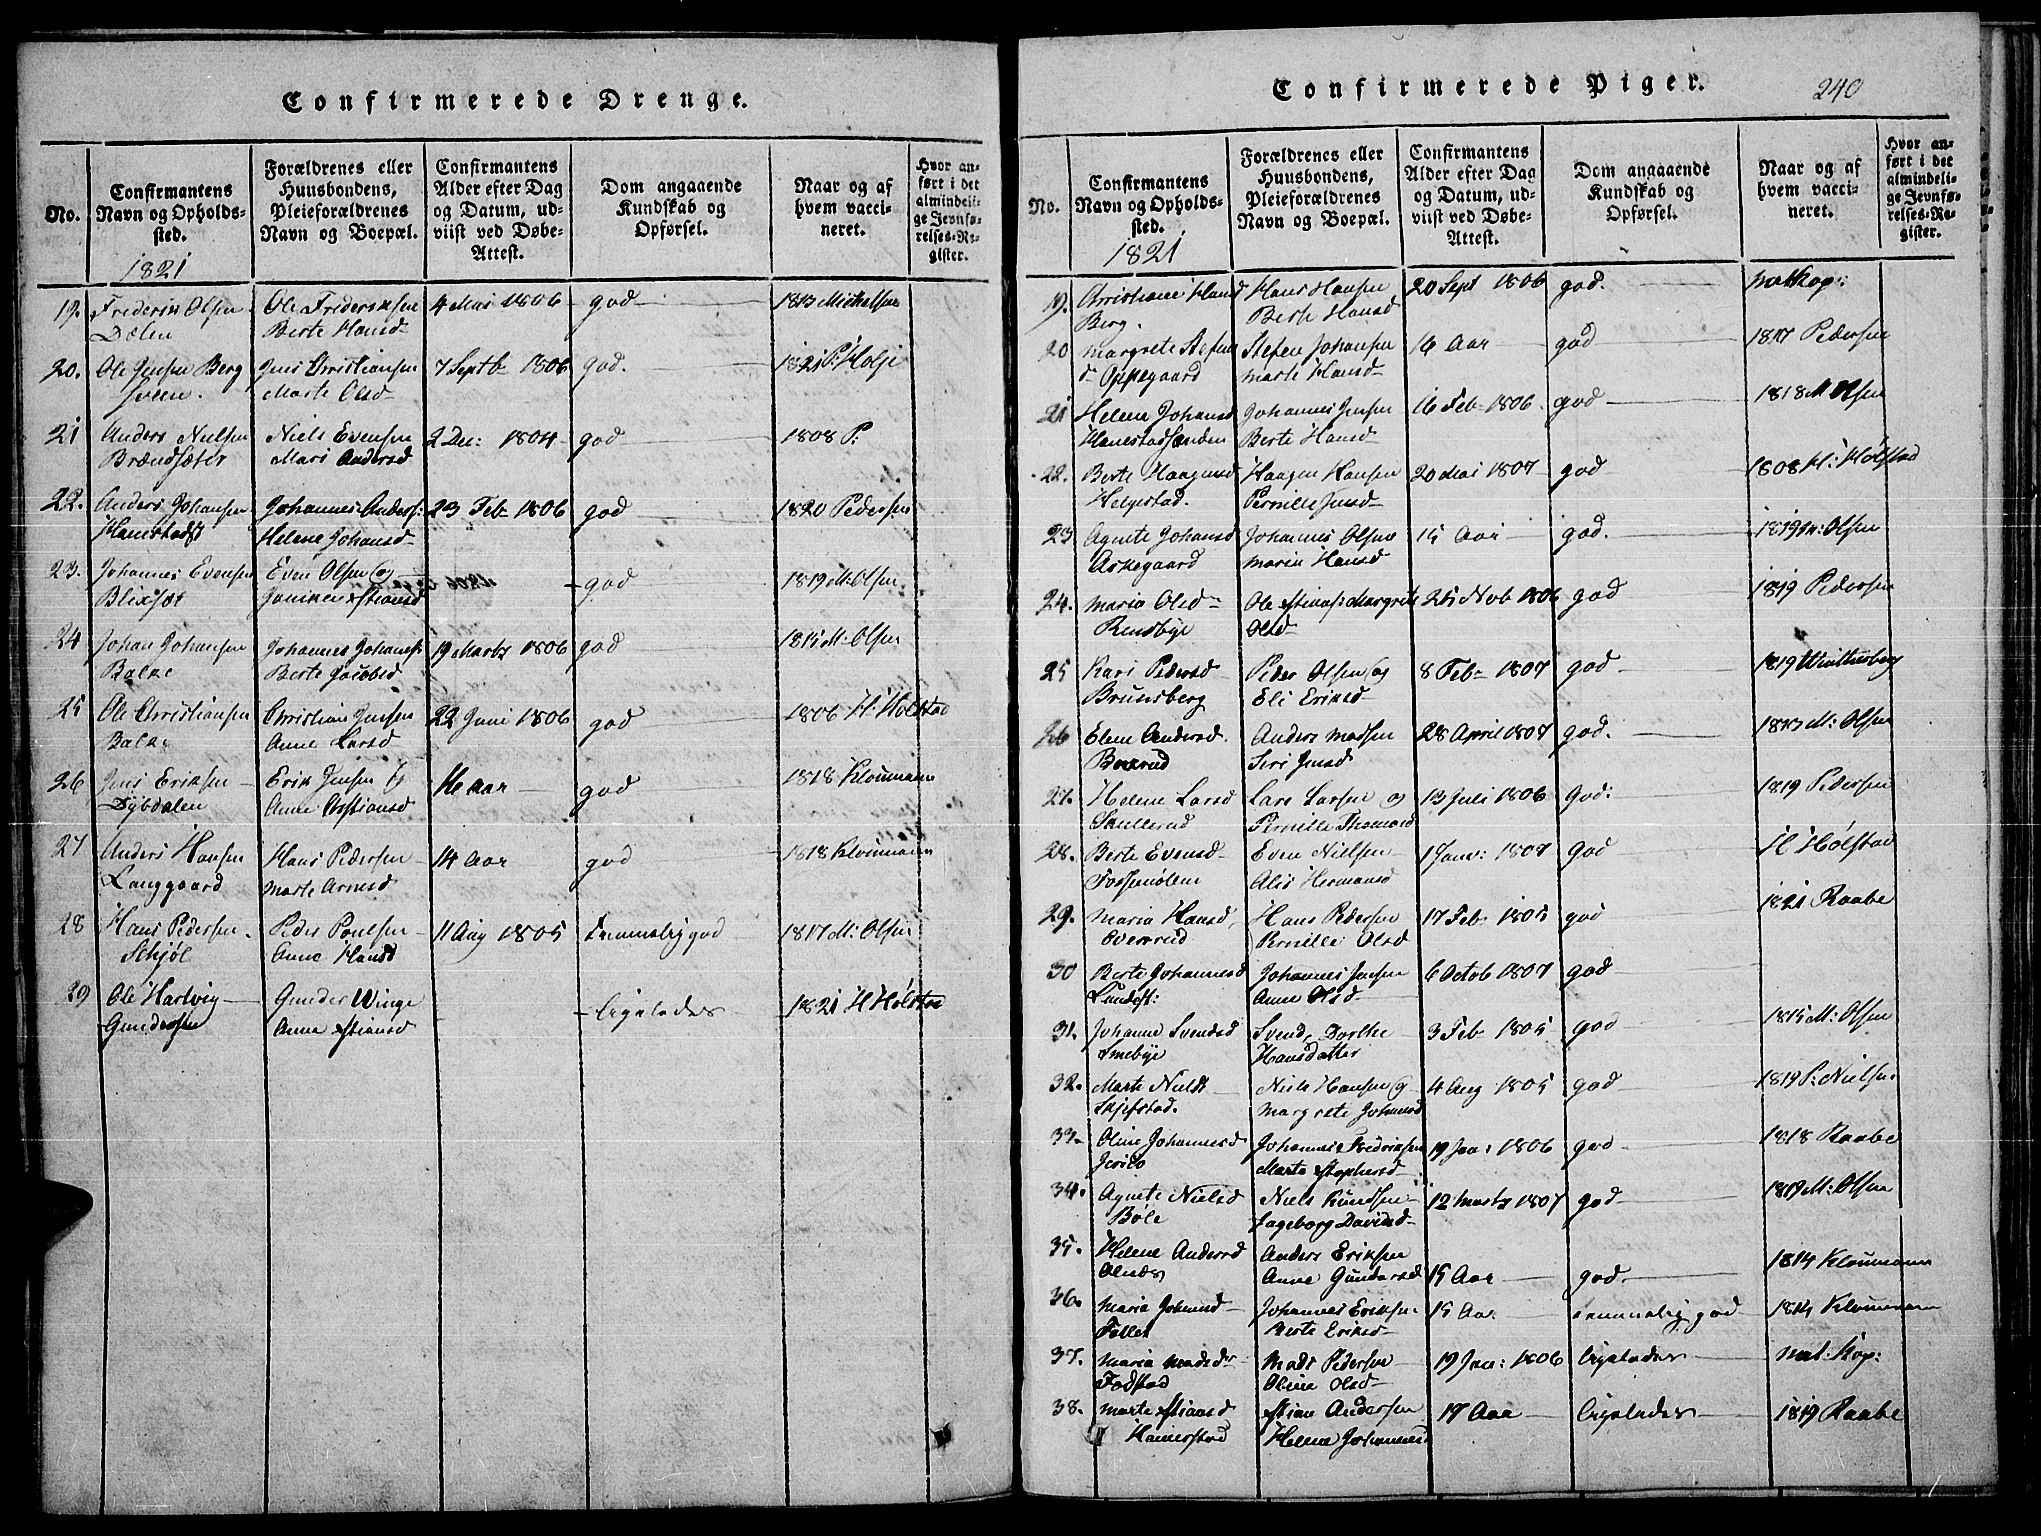 Confirmerede Drenge.
No.
Confirmantens Navn og Opholdssted.
Forældrenes eller Huusbondens, Pleieforældrenes Navn og Boepæl.
Confirmantens Alder efter Dag og Datum, udviist ved Døbe-Attest.
Dom angaaende Kundskab og Opførsel.
Naar og af hvem vaccineret.
Hvor anført i det almindelige Jevnførelses-Register.
1821
19. Frederik Olsen Ole Frideriksen 4 Mai 1806 god 1813 Michelsen
Dælen Berte Hansd
20. Ole Jensen Berg Jens Christiansen 7 Septb 1806 god. 1821 P: Holje
Sveen. Marte Olsd
21 Anders Nielsen Niels Evensen 2 Dec: 1804 god 1808 P:
Brændsæter Mari Andersd
22. Anders Johansen Johannes Anders: 23 Feb 1806 god 1820 Pedersen
Hanestadst Helene Johansd
23. Johannes Evensen Even Olsen og 1806 god 1819 M: Olsen
Blixsæt
24 Johan Johansen Johannes Johans: 19 Marts 1806 god 1815 M: Olsen
Balke Berte Jacobsd
25 Ole Christiansen Christian Jensen 22 Juni 1806 god 1806 H: Hølstad
Balke Anne Larsd
26 Jens Eriksen Erik Jensen og 16 aar god 1818 Kloumann
Dybdalen Anne Xstiansd
27 Anders Hansen Hans Pedersen 14 Aar god 1818 Kloumann
Langgaard Marte Arnesd
28 Hans Pedersen Peder Poulsen 11 Aug 1805 temmelig god 1817 M: Olsen
Schjøl Anne Hansd
29 Ole Hartvig Gunder Winge ligeledes 1821 H Hølstad
Gundersen Anne Xstiansd
Confirmerede Piger.
240
No.
Confirmantens Navn og Opholdssted.
Forældrenes eller Huusbondens, Pleieforældrenes Navn og Boepæl.
Confirmantens Alder efter Dag og Datum, udviist ved Døbe-Attest.
Dom angaaende Kundskab og Opførsel.
Naar og af hvem vaccineret.
Hvor anført i det almindelige Jevnførelses-Register.
1821
19. Christiane Hansd Hans Hansen 20 Sept 1806 god. nat kop:
Berg. Berte Hansd
20 Margrete Stefens Stefen Johansen 16 Aar god 1817 Pedersen
d Oppegaard Marte Hansd
21 Helene Johansd Johannes Jensen 16 Feb 1806. god 1818 M Olsen
Hanestadsanden Berte Hansd
22. Berte Haagensd Haagen Hansen 20 Mai 1807 god 1808 H: Hølstad
Helgestad. Pernille Jensd
23 Agnete Johansd Johannes Olsen 15 Aar god. 1819 M: Olsen
Askegaard Marie Hansd
24. Maria Olsd Ole Xtians: Margrete 25 Nob 1806 god 1819 Pedersen
Rensbye Olsd
25 Kari Pedersd Peder Olsen og 8 Feb 1807 god 1819 Winttersberg
Brunsberg Eli Eriksd
26 Elene Andersd. Anders Madsen 28 April 1807 god. M: Olsen
Siri Jensd
27. Helene Larsd Lars Larsen og 13 Juli 1806 god: 1819 Pedersen
Skullerud Pernille Thomasd
28. Berte Evensd Even Nielsen 1 Janv: 1807 god H Hølstad
Fossemølen Alis Hermansd
29. Maria Hansd, Hans Pedersen 17 Feb 1805 god 1821 Raabe
Overrud Pernille Olsd
30 Berte Johannesd Johannes Jensen 6 Octob 1807 god
Lundest: Anne Olsd
31. Johanne Svendsd Svend, Dorthe 3 Feb 1805 god 1815 M: Olsen
Smebye Hansdatter
32. Marte Nielsd Niels Hansen og 4 Aug 1805 god 1819 P: Nielsen
Skjefstad. Margrete Johansd
33. Oline Johannesd Johannes Fredriksen 19 Jan: 1806 god 1818 Raabe
Jeriko Marte Xstophersd
34. Agnete Nielsd Niels Knudsen 12 Marts 1807 god 1819 M: Olsen
Bøle Ingeborg Davidsd
35. Helene Andersd Anders Eriksen 15 Aar god. 1814 Kloumann
Alnæs Anne Gundersd
36. Maria Johansd Johannes Eriksen 15 Aar temmelig god Kloumann
Berte Eriksd
37. Maria Madsdr Mads Pedersen 19 Jan: 1806 ligeledes nat: kop:
Fodstad Oline Olsd
38. Marte Xstiansd Xstian Andersen 17 Aar ligeledes 1819 Raabe
Hanestad Helene Johannesd